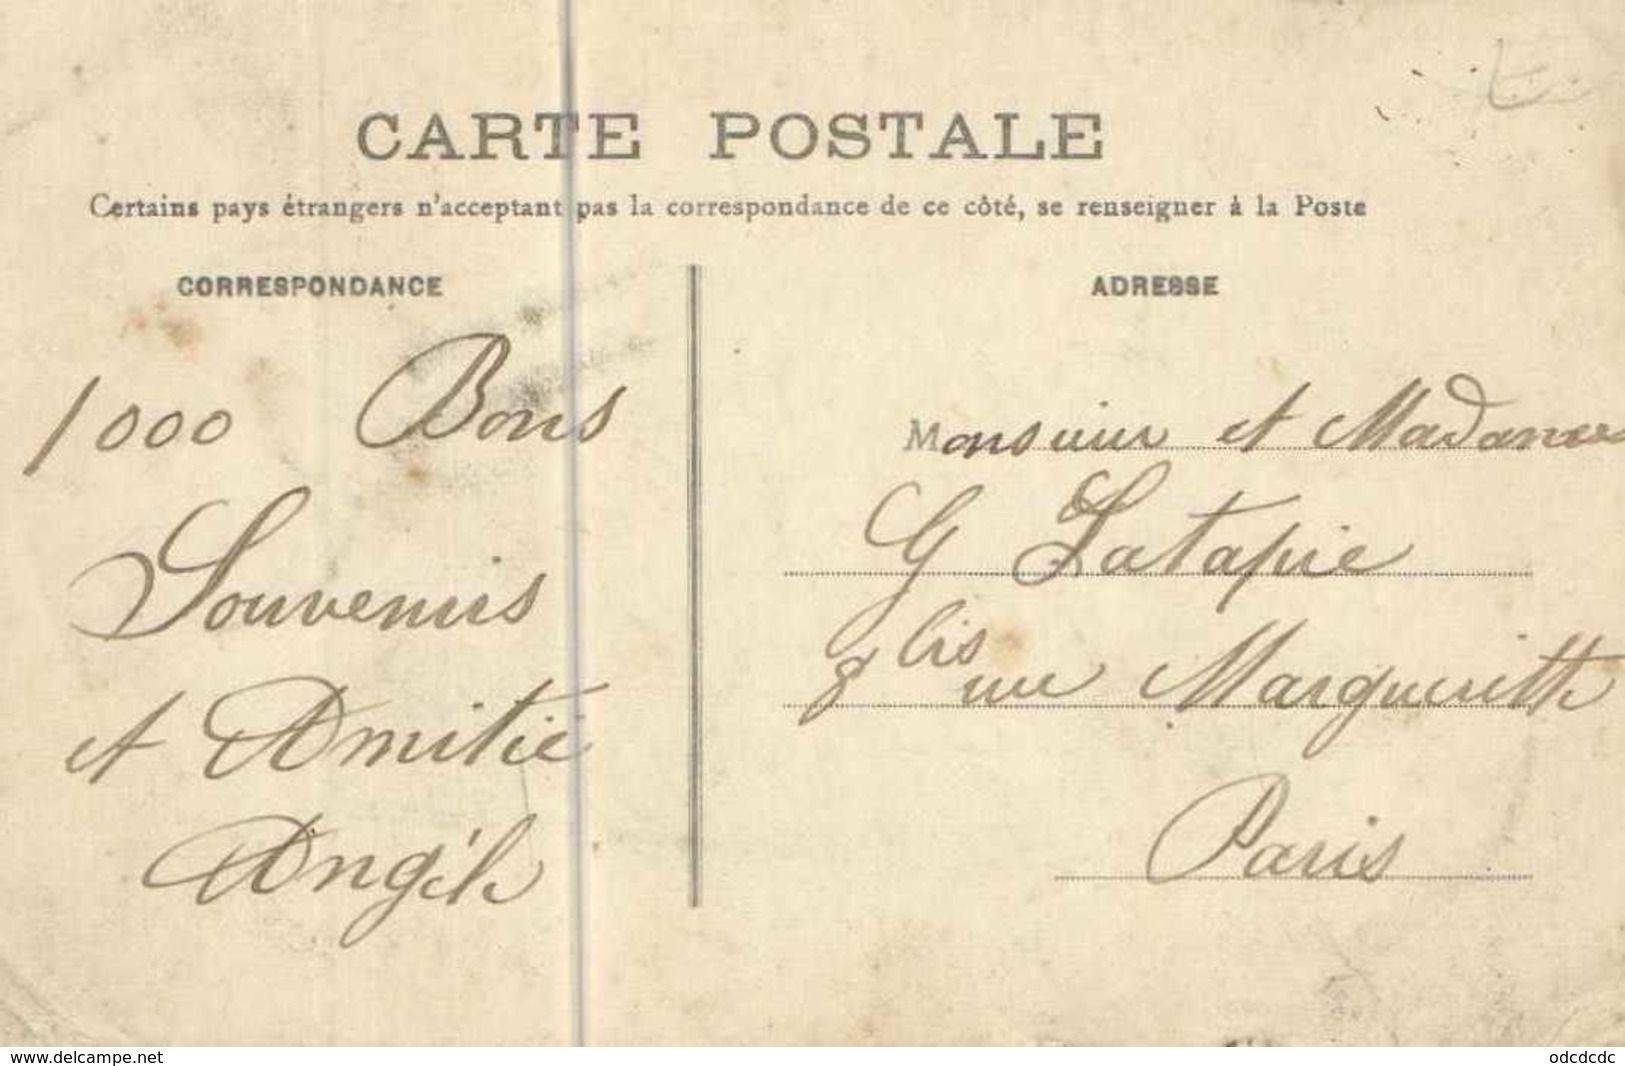 CARTE POSTALE
Certains pays étrangers n'acceptant pas la correspondance de ce côté, se renseigner à la Poste
CORRESPONDANCE
1000 Bons
Souvenirs
et Amitié
Angèle
ADRESSE
Monsieur et Madame
G Latapie
8 bis rue Margueritte
Paris
www.delcampe.net
odcdcdc